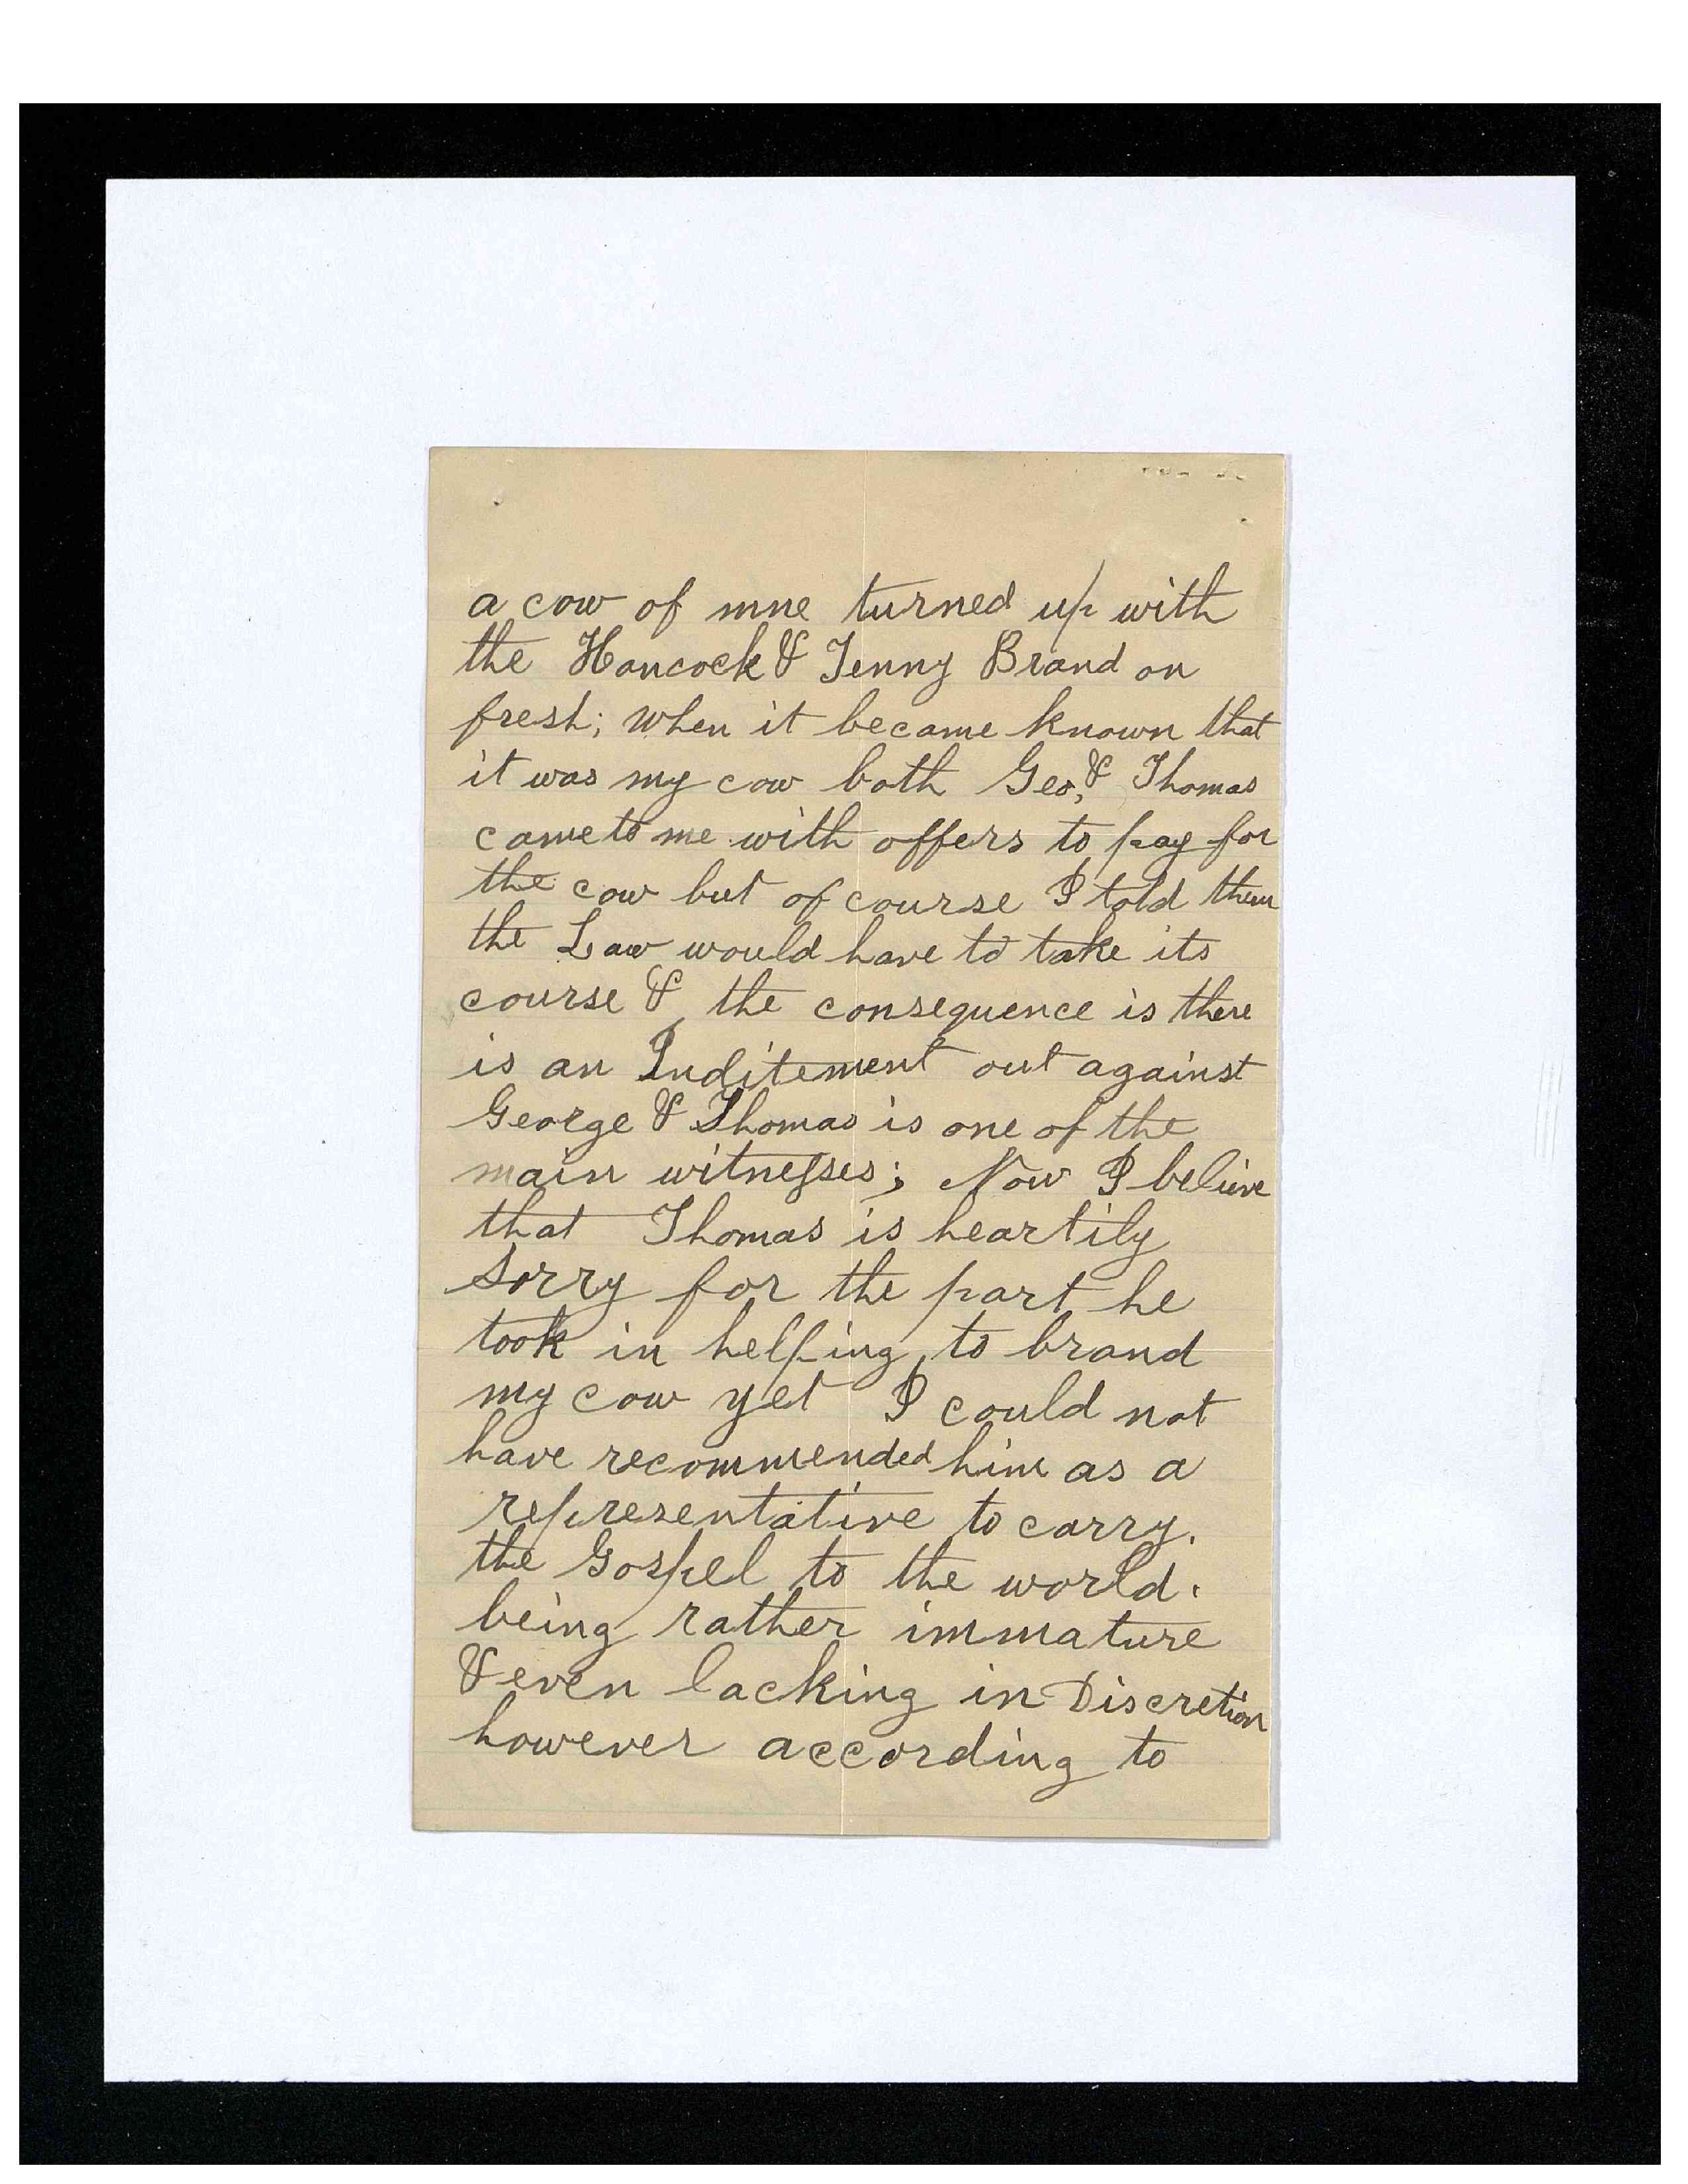 a cow of mne turned up with
the Hancock & Tenny Brand on
fresh; when it became known that
it was my cow both Geo, & Thomas
came to me with offers to pay for
the cow but of course I told them
the Law would have to take its
course & the consequence is there
is an Inditement out against
George & Thomas is one of the
main witnesses; Now I believe
that Thomas is heartily
sorry for the part he
took in helping to brand
my cow yet I could not
have recommended him as a
representative to carry.
the Gospel to the world.
being rather immature
& even lacking in Discretion
however according to